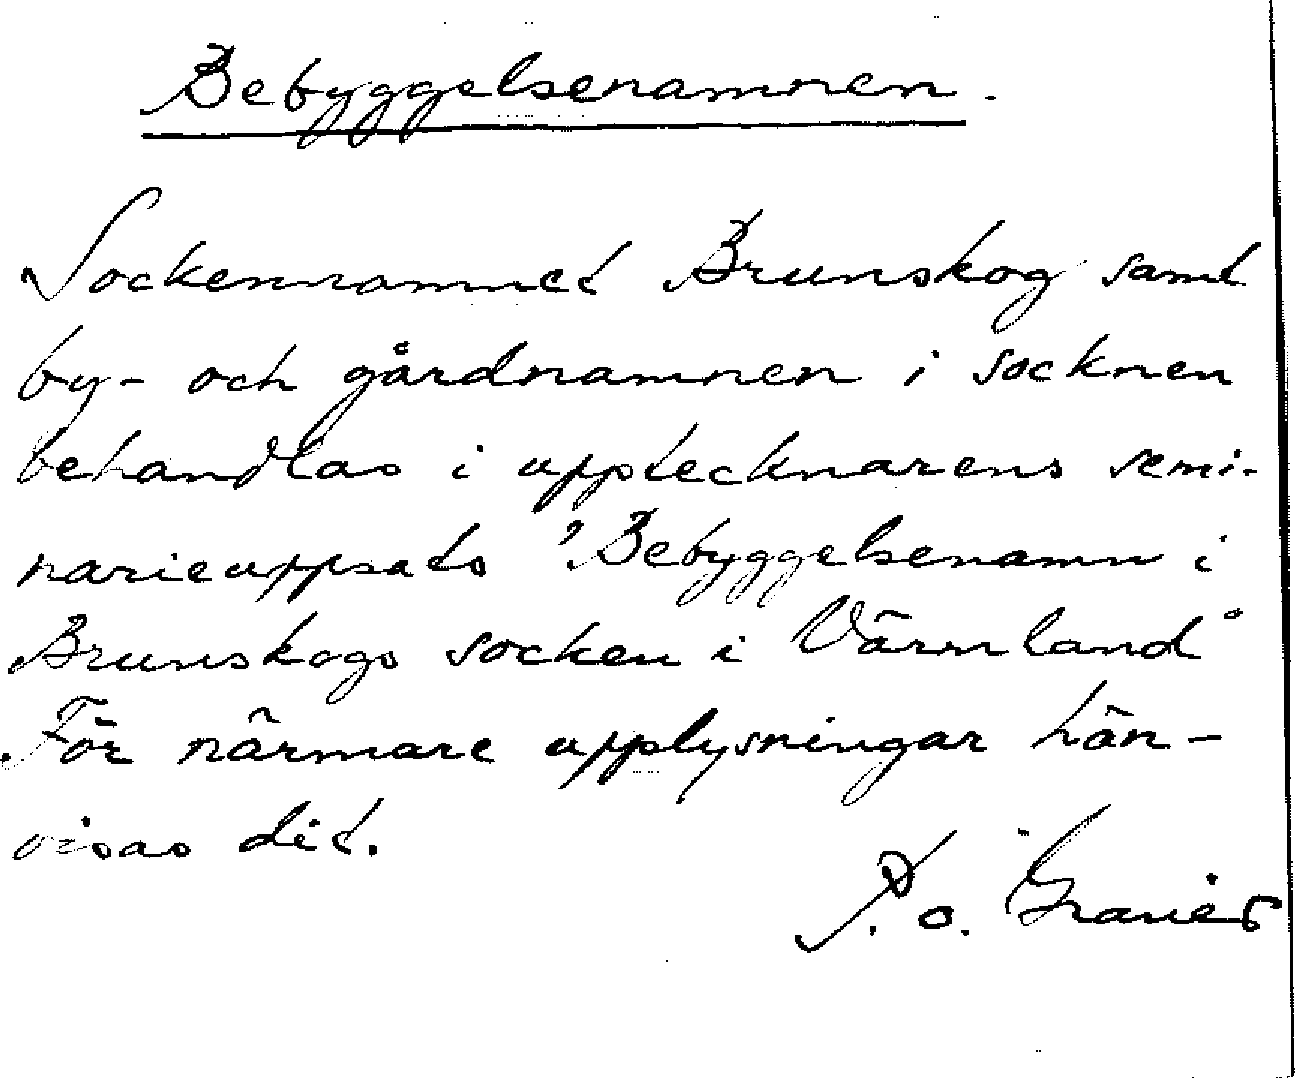 Bebyggelsenamnen.
Sockennamnet Brunskog samt
by- och gårdnamnen i socknen
behandlas i upptecknarens semi-
narieuppsats "Bebyggelsenamn i
Brunskogs socken i Värmland"
För närmare upplysningar hän-
visas dit.
P. O.